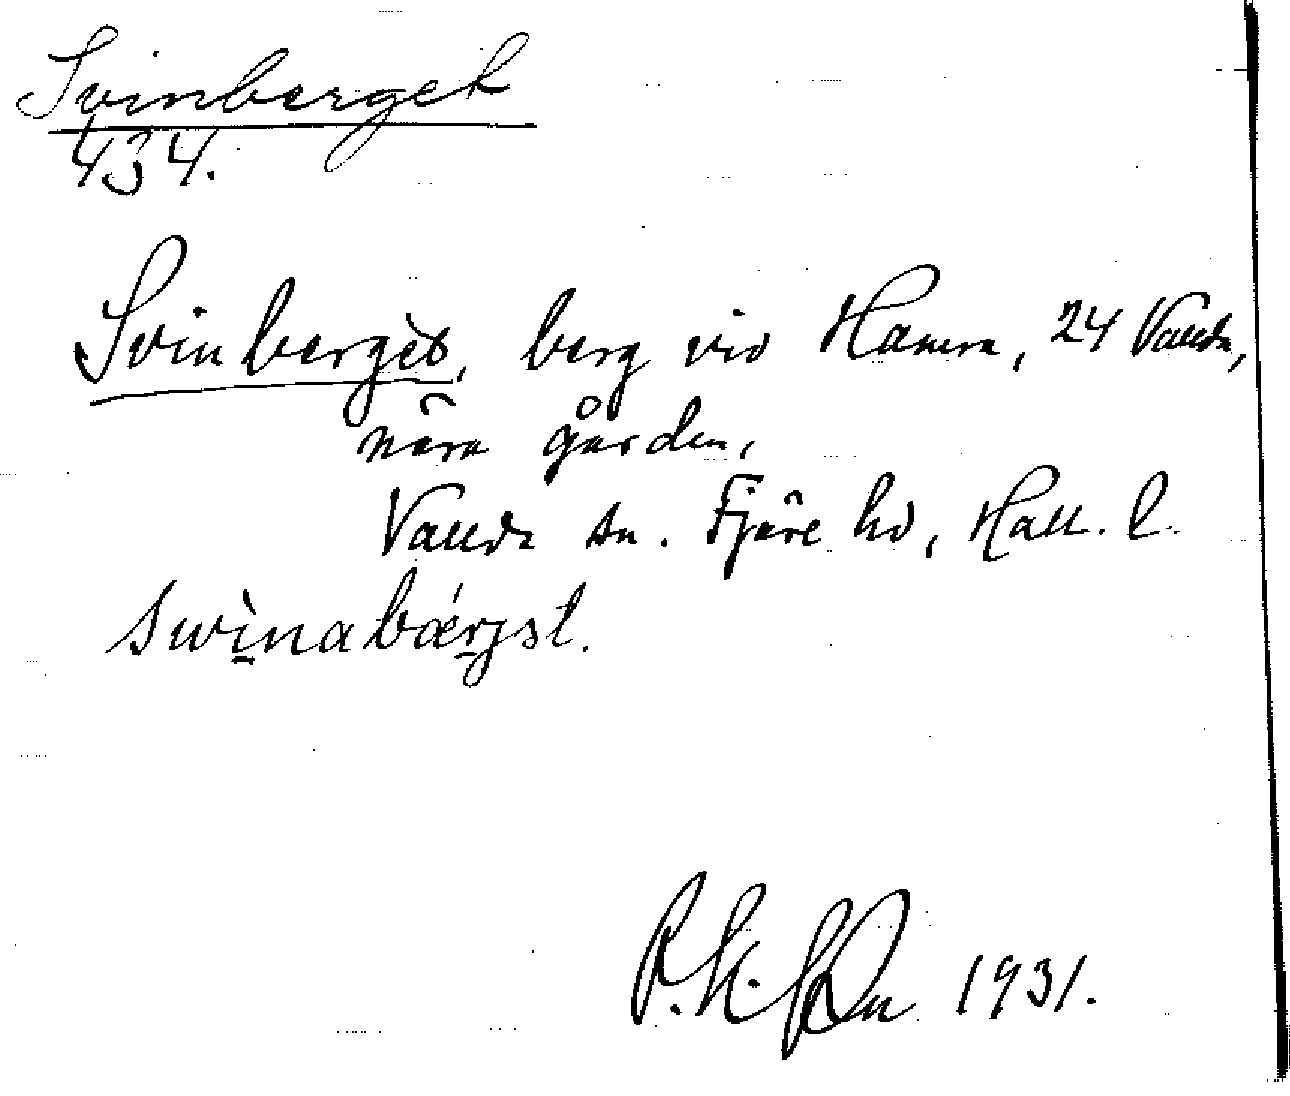 Svinberget
434.
Svinberget, berg vid Hamra, 24 Valda,
nära gården,
Valda sn. Fjäre hd, Hall. l.
swìnabǽrjət.
1931.